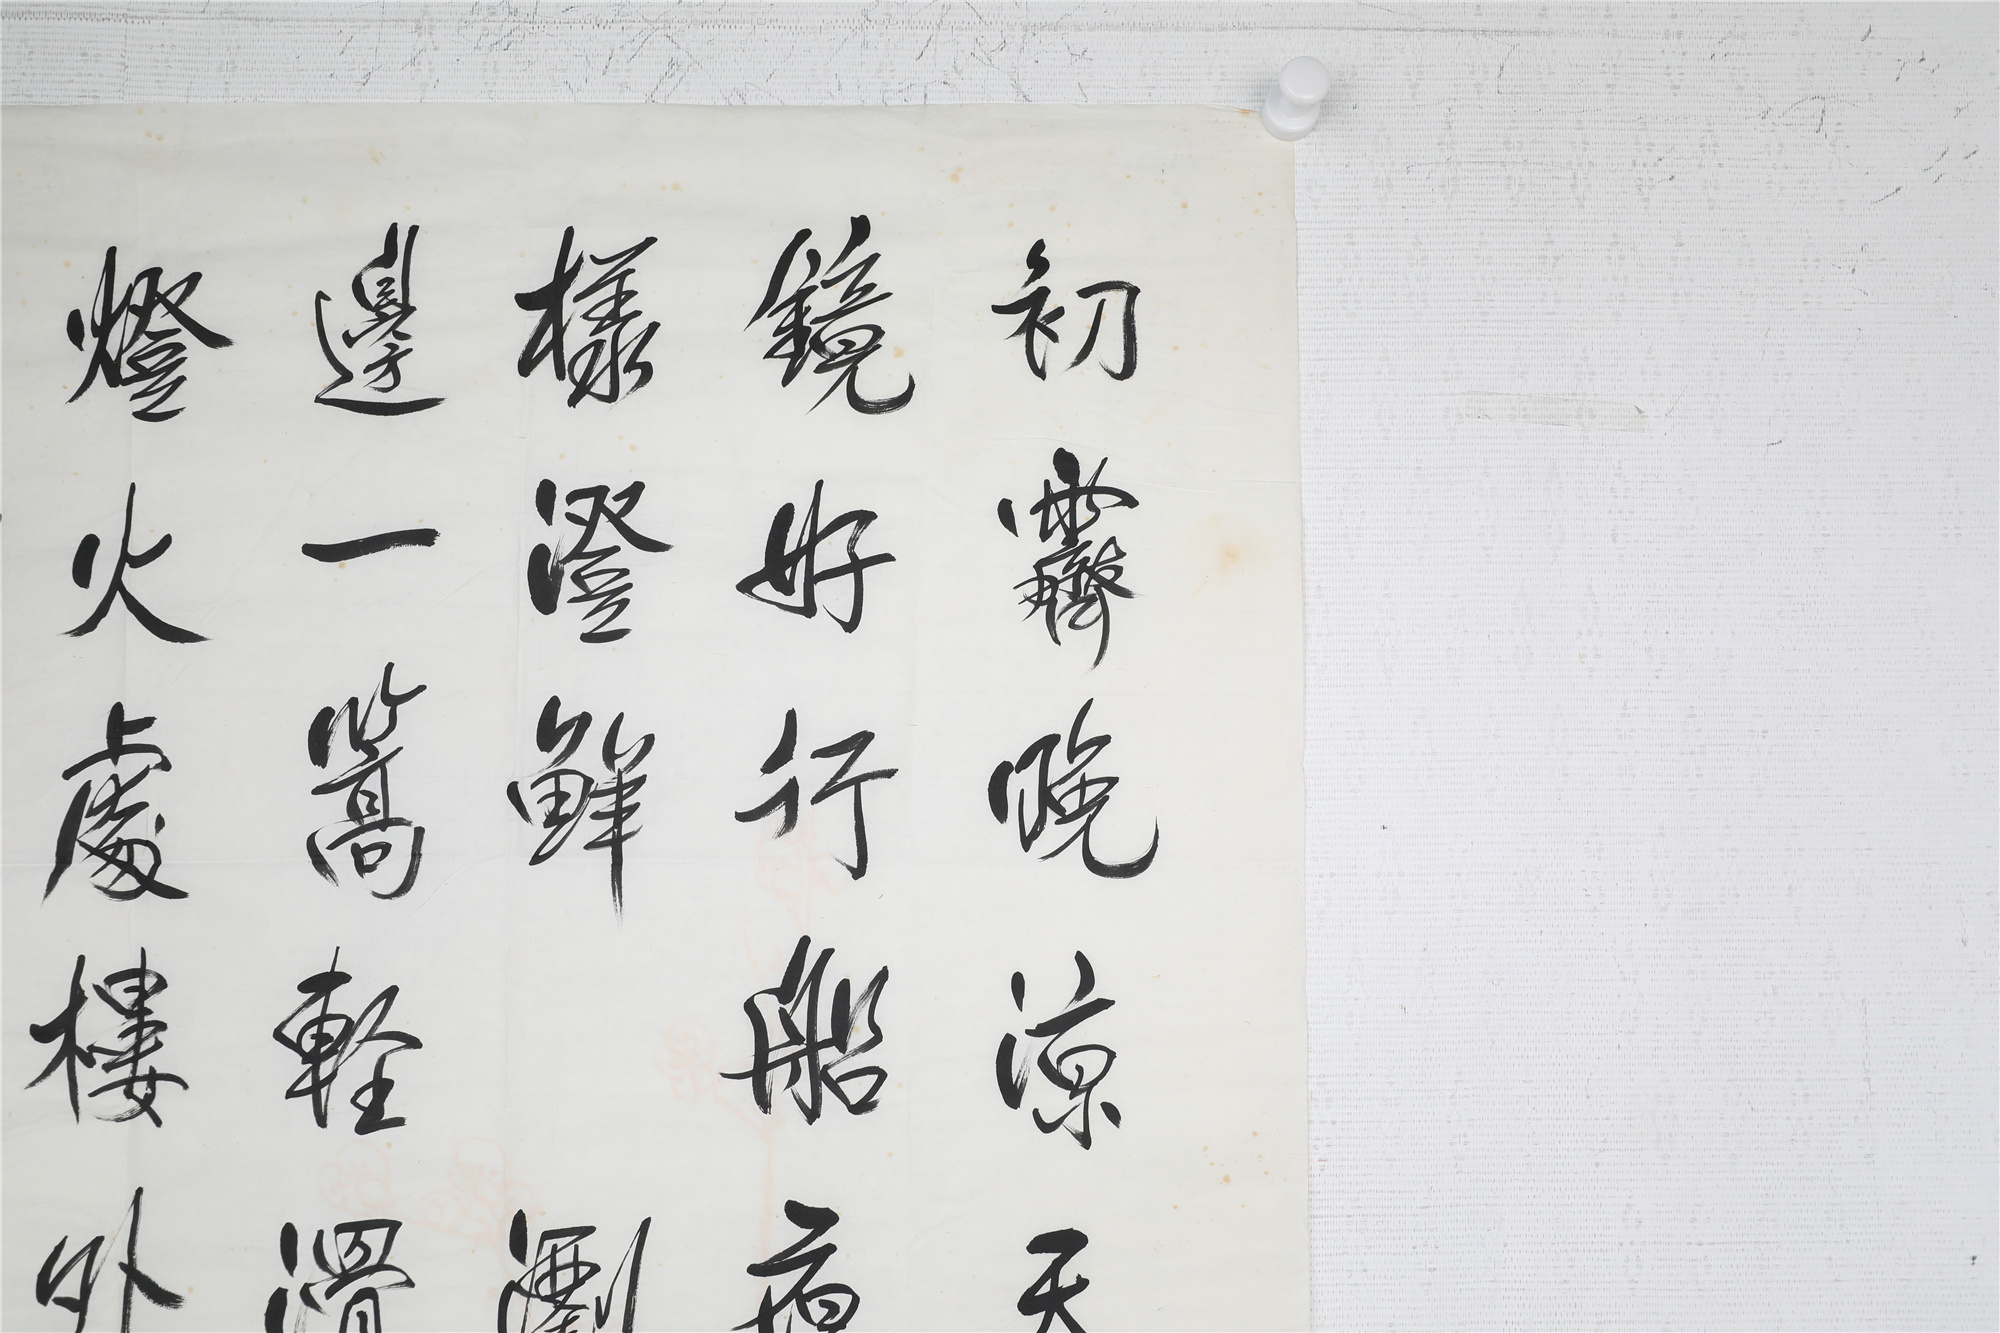 初霽晚涼天
鏡好行船
樣澄鮮 瀏
邊一篙輕滑
燈火處樓外